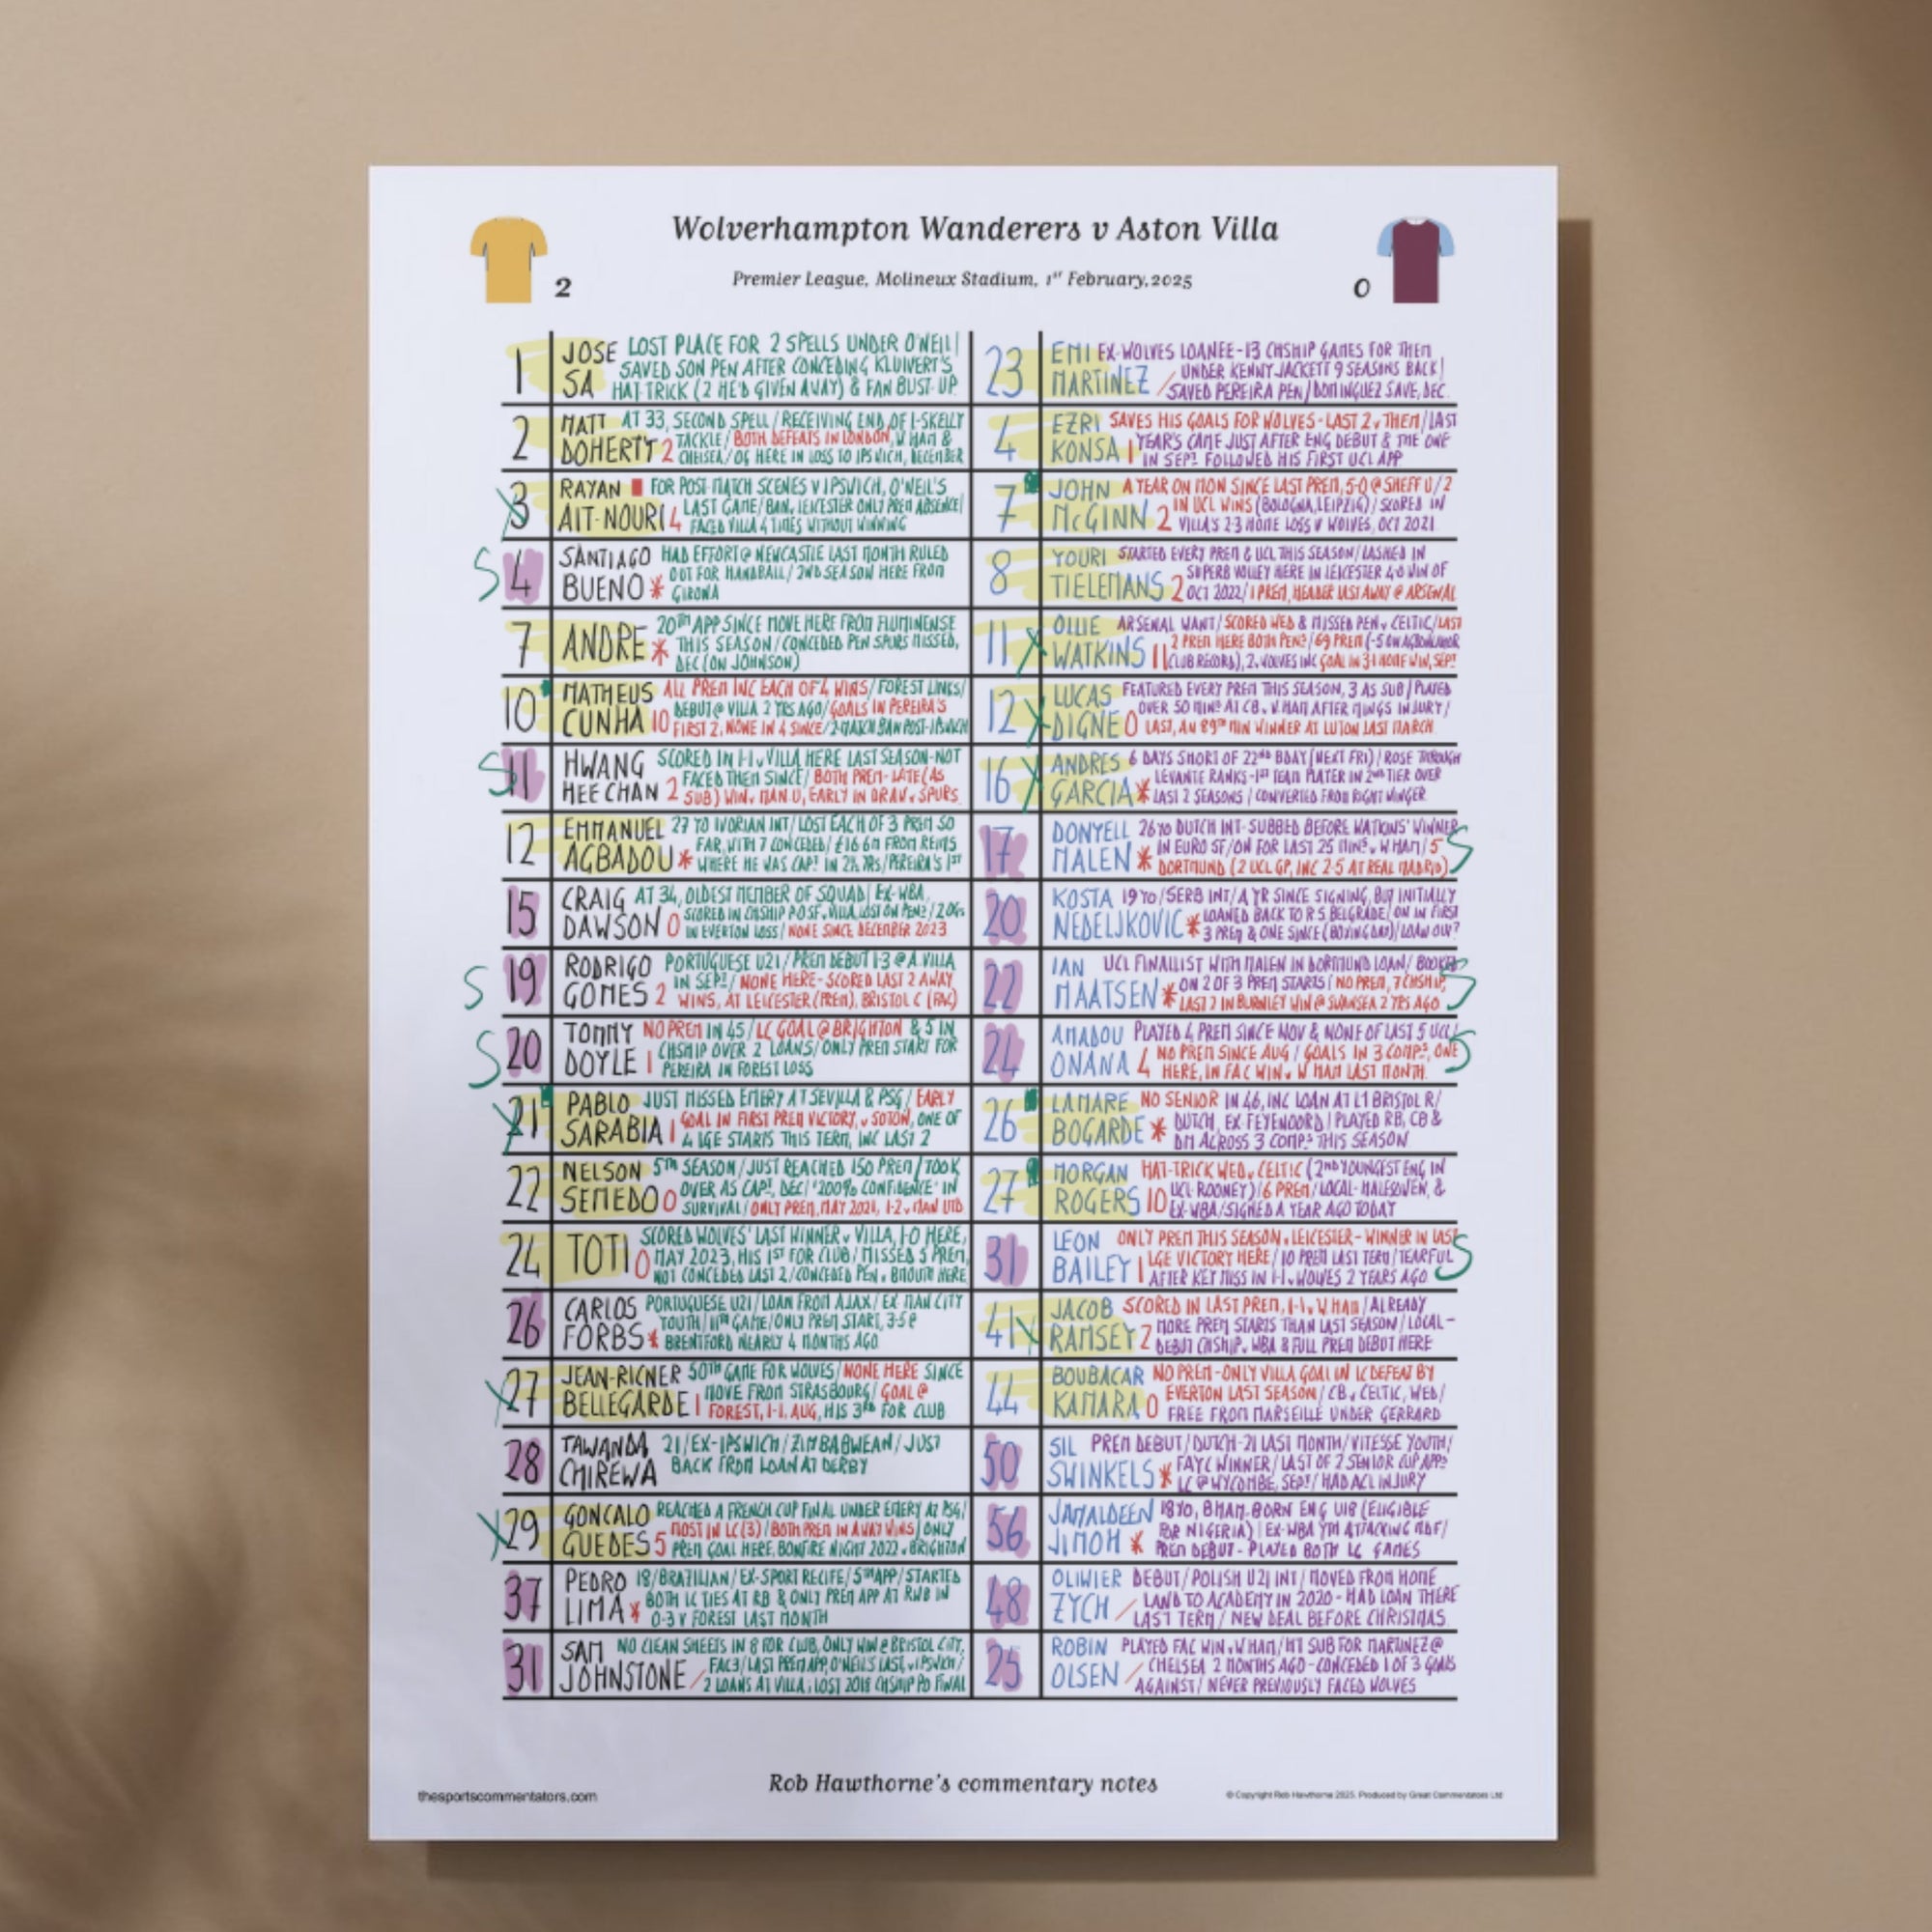 Wolverhampton Wanderers v Aston Villa
2
Premier League, Molineux Stadium, 1st February, 2025
0
1 JOSE SA
LOST PLACE FOR 2 SPELLS UNDER O'NEIL/
SAVED SON PEN AFTER CONCEDING KLUIVERT'S
HAT-TRICK (2 HE'D GIVEN AWAY) & FAN BUST-UP
23 EMI MARTINEZ /
EX-WOLVES LOANEE-13 CHSHIP GAMES FOR THEM
UNDER KENNY JACKETT 9 SEASONS BACK/
SAVED PEREIRA PEN/DOMINGUEZ SAVE, DEC
2 MATT DOHERTY 2
AT 33, SECOND SPELL/RECEIVING END OF L-SKELLY
TACKLE/BOTH DEFEATS IN LONDON, W HAM &
CHELSEA/OG HERE IN LOSS TO IPSWICH, DECEMBER
4 EZRI KONSA 1
SAVES HIS GOALS FOR WOLVES-LAST 2 v THEM/LAST
YEAR'S CAME JUST AFTER ENG DEBUT & THE ONE
IN SEPT FOLLOWED HIS FIRST UCL APP
3 RAYAN AIT-NOURI 4
FOR POST-MATCH SCENES V IPSWICH, O'NEIL'S
LAST GAME/BAN, LEICESTER ONLY PREM ABSENCE/
FACED VILLA 4 TIMES WITHOUT WINNING
7 JOHN McGINN 2
A YEAR ON MON SINCE LAST PREM, 5-0 @ SHEFF U/2
IN UCL WINS (BOLOGNA, LEIPZIG)/SCORED IN
VILLA'S 2-3 HOME LOSS V WOLVES, OCT 2021
S 4 SANTIAGO BUENO *
HAD EFFORT @ NEWCASTLE LAST MONTH RULED
OUT FOR HANDBALL/2ND SEASON HERE FROM
GIRONA
8 YOURI TIELEMANS 2
STARTED EVERY PREM & UCL THIS SEASON/LASHED IN
SUPERB VOLLEY HERE IN LEICESTER 4-0 WIN OF
OCT 2022/1 PREM, HEADER LAST AWAY @ ARSENAL
7 ANDRE *
20TH APP SINCE MOVE HERE FROM FLUMINENSE
THIS SEASON/CONCEDED PEN SPURS MISSED,
DEC (ON JOHNSON)
11 OLLIE WATKINS 11
ARSENAL WANT/SCORED WED & MISSED PEN v CELTIC/LAST
2 PREM HERE BOTH PENS/69 PREM (-5 ON AGBONLAHOR
CLUB RECORD), 2 v WOLVES INC GOAL IN 3-1 HOME WIN, SEPT
10 MATHEUS CUNHA 10
ALL PREM INC EACH OF 4 WINS/FOREST LINKS/
DEBUT @ VILLA 2 YRS AGO/GOALS IN PEREIRA'S
FIRST 2, NONE IN 4 SINCE/2-MATCH BAN POST-IPSWICH
12 LUCAS DIGNE 0
FEATURED EVERY PREM THIS SEASON, 3 AS SUB/PLAYED
OVER 50 MINS AT CB v W HAM AFTER MINGS INJURY/
LAST, AN 89TH MIN WINNER AT LUTON LAST MARCH
S 11 HWANG HEE CHAN 2
SCORED IN 1-1 v VILLA HERE LAST SEASON-NOT
FACED THEM SINCE/BOTH PREM-LATE (AS
SUB) WIN v MAN U, EARLY IN DRAW v SPURS
16 ANDRES GARCIA *
6 DAYS SHORT OF 22ND BDAY (NEXT FRI)/ROSE THROUGH
LEVANTE RANKS-1ST TEAM PLAYER IN 2ND TIER OVER
LAST 2 SEASONS/CONVERTED FROM RIGHT WINGER
12 EMMANUEL AGBADOU *
27 YO IVORIAN INT/LOST EACH OF 3 PREM SO
FAR, WITH 7 CONCEDED/£16.6M FROM REIMS
WHERE HE WAS CAPT IN 2½ YRS/PEREIRA'S 1ST
17 DONYELL MALEN * S
26 YO DUTCH INT-SUBBED BEFORE WATKINS' WINNER
IN EURO SF/ON FOR LAST 25 MINS v W HAM/5
DORTMUND (2 UCL GP, INC 2-5 AT REAL MADRID)
15 CRAIG DAWSON 0
AT 34, OLDEST MEMBER OF SQUAD/EX-WBA,
SCORED IN CHSHIP PO SF v VILLA, LOST ON PENS/2 OGs
IN EVERTON LOSS/NONE SINCE DECEMBER 2023
20 KOSTA NEDELJKOVIC *
19 YO/SERB INT/A YR SINCE SIGNING, BUT INITIALLY
LOANED BACK TO R S BELGRADE/ON IN FIRST
3 PREM & ONE SINCE (BOXING DAY)/LOAN OUT?
S 19 RODRIGO GOMES 2
PORTUGUESE U21/PREM DEBUT 1-3 @ A.VILLA
IN SEPT/NONE HERE-SCORED LAST 2 AWAY
WINS, AT LEICESTER (PREM), BRISTOL C (FAC)
22 IAN MAATSEN * S
UCL FINALLIST WITH MALEN IN DORTMUND LOAN/BOOKED
ON 2 OF 3 PREM STARTS/NO PREM, 7 CHSHIP,
LAST 2 IN BURNLEY WIN @ SWANSEA 2 YRS AGO
S 20 TOMMY DOYLE 1
NO PREM IN 45/LC GOAL @ BRIGHTON & 5 IN
CHSHIP OVER 2 LOANS/ONLY PREM START FOR
PEREIRA IN FOREST LOSS
24 AMADOU ONANA 4 S
PLAYED 4 PREM SINCE NOV & NONE OF LAST 5 UCL/
NO PREM SINCE AUG/GOALS IN 3 COMPS, ONE
HERE, IN FAC WIN v W HAM LAST MONTH
21 PABLO SARABIA 1
JUST MISSED EMERY AT SEVILLA & PSG/EARLY
GOAL IN FIRST PREM VICTORY, v SOTON, ONE OF
4 LGE STARTS THIS TERM, INC LAST 2
26 LAMARE BOGARDE *
NO SENIOR IN 46, INC LOAN AT L1 BRISTOL R/
DUTCH, EX-FEYENOORD/PLAYED RB, CB &
DM ACROSS 3 COMPS THIS SEASON
22 NELSON SEMEDO 0
5TH SEASON/JUST REACHED 150 PREM/TOOK
OVER AS CAPT, DEC/'200% CONFIDENCE' IN
SURVIVAL/ONLY PREM, MAY 2021, 1-2 v MAN UTD
27 MORGAN ROGERS 10
HAT-TRICK WED v CELTIC (2ND YOUNGEST ENG IN
UCL-ROONEY)/6 PREM/LOCAL-HALESOWEN, &
EX-WBA/SIGNED A YEAR AGO TODAY
24 TOTI 0
SCORED WOLVES' LAST WINNER v VILLA, 1-0 HERE,
MAY 2023, HIS 1ST FOR CLUB/MISSED 5 PREM,
NOT CONCEDED LAST 2/CONCEDED PEN v BMOUTH HERE
31 LEON BAILEY 1 S
ONLY PREM THIS SEASON v LEICESTER-WINNER IN LAST
LGE VICTORY HERE/10 PREM LAST TERM/TEARFUL
AFTER KEY MISS IN 1-1 v WOLVES 2 YEARS AGO
26 CARLOS FORBS *
PORTUGUESE U21/LOAN FROM AJAX/EX MAN CITY
YOUTH/11TH GAME/ONLY PREM START, 3-5 @
BRENTFORD NEARLY 4 MONTHS AGO
41 JACOB RAMSEY 2
SCORED IN LAST PREM, 1-1 v W HAM/ALREADY
MORE PREM STARTS THAN LAST SEASON/LOCAL-
DEBUT CHSHIP v WBA & FULL PREM DEBUT HERE
27 JEAN-RICNER BELLEGARDE 1
50TH GAME FOR WOLVES/NONE HERE SINCE
MOVE FROM STRASBOURG/GOAL @
FOREST, 1-1, AUG, HIS 3RD FOR CLUB
44 BOUBACAR KAMARA 0
NO PREM-ONLY VILLA GOAL IN LC DEFEAT BY
EVERTON LAST SEASON/CB v CELTIC, WED/
FREE FROM MARSEILLE UNDER GERRARD
28 TAWANDA CHIREWA
21/EX-IPSWICH/ZIMBABWEAN/JUST
BACK FROM LOAN AT DERBY
50 SIL SWINKELS *
PREM DEBUT/DUTCH-21 LAST MONTH/VITESSE YOUTH/
FAYC WINNER/LAST OF 2 SENIOR CUP APPS
LC @ WYCOMBE, SEPT/HAD ACL INJURY
29 GONCALO GUEDES 5
REACHED A FRENCH CUP FINAL UNDER EMERY AT PSG/
MOST IN LC (3)/BOTH PREM IN AWAY WINS/ONLY
PREM GOAL HERE, BONFIRE NIGHT 2022 v BRIGHTON
56 JAMALDEEN JIMOH *
18 YO, BHAM-BORN ENG U18 (ELIGIBLE
FOR NIGERIA)/EX-WBA YTH ATTACKING MDF/
PREM DEBUT-PLAYED BOTH LC GAMES
37 PEDRO LIMA *
18/BRAZILIAN/EX-SPORT RECIFE/5TH APP/STARTED
BOTH LC TIES AT RB & ONLY PREM APP AT RWB IN
0-3 V FOREST LAST MONTH
48 OLIWIER ZYCH /
DEBUT/POLISH U21 INT/MOVED FROM HOME
LAND TO ACADEMY IN 2020-HAD LOAN THERE
LAST TERM/NEW DEAL BEFORE CHRISTMAS
31 SAM JOHNSTONE /
NO CLEAN SHEETS IN 8 FOR CLUB, ONLY WIN @ BRISTOL CITY,
FAC3/LAST PREM APP, O'NEIL'S LAST, v IPSWICH/
2 LOANS AT VILLA; LOST 2018 CHSHIP PO FINAL
25 ROBIN OLSEN /
PLAYED FAC WIN v W HAM/HT SUB FOR MARTINEZ @
CHELSEA 2 MONTHS AGO-CONCEDED 1 OF 3 GOALS
AGAINST/NEVER PREVIOUSLY FACED WOLVES
Rob Hawthorne's commentary notes
thesportscommentators.com
© Copyright Rob Hawthorne 2025. Produced by Great Commentators Ltd